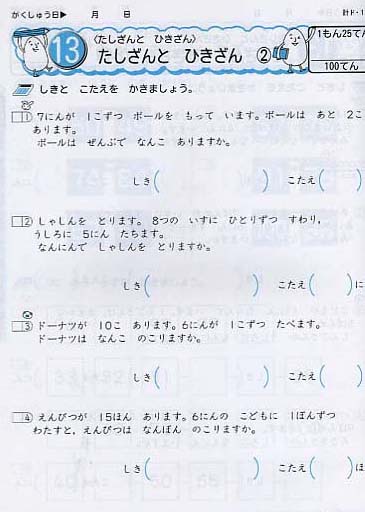 がくしゅう日▶ 月 日
計ド・1
13
〈たしざんと ひきざん〉
たしざんと ひきざん ②
1もん25てん
100てん
しきと こたえを かきましょう。
1 7にんが 1こずつ ボールを もって います。ボールは あと 2こ
あります。
ボールは ぜんぶで なんこ ありますか。
しき( ) こたえ( )
2 しゃしんを とります。 8つの いすに ひとりずつ すわり,
うしろに 5にん たちます。
なんにんで しゃしんを とりますか。
しき( ) こたえ( )に
3 ドーナツが 10こ あります。6にんが 1こずつ たべます。
ドーナツは なんこ のこりますか。
しき( ) こたえ( )
4 えんぴつが 15ほん あります。6にんの こどもに 1ぽんずつ
わたすと, えんぴつは なんぼん のこりますか。
しき( ) こたえ( )ほ